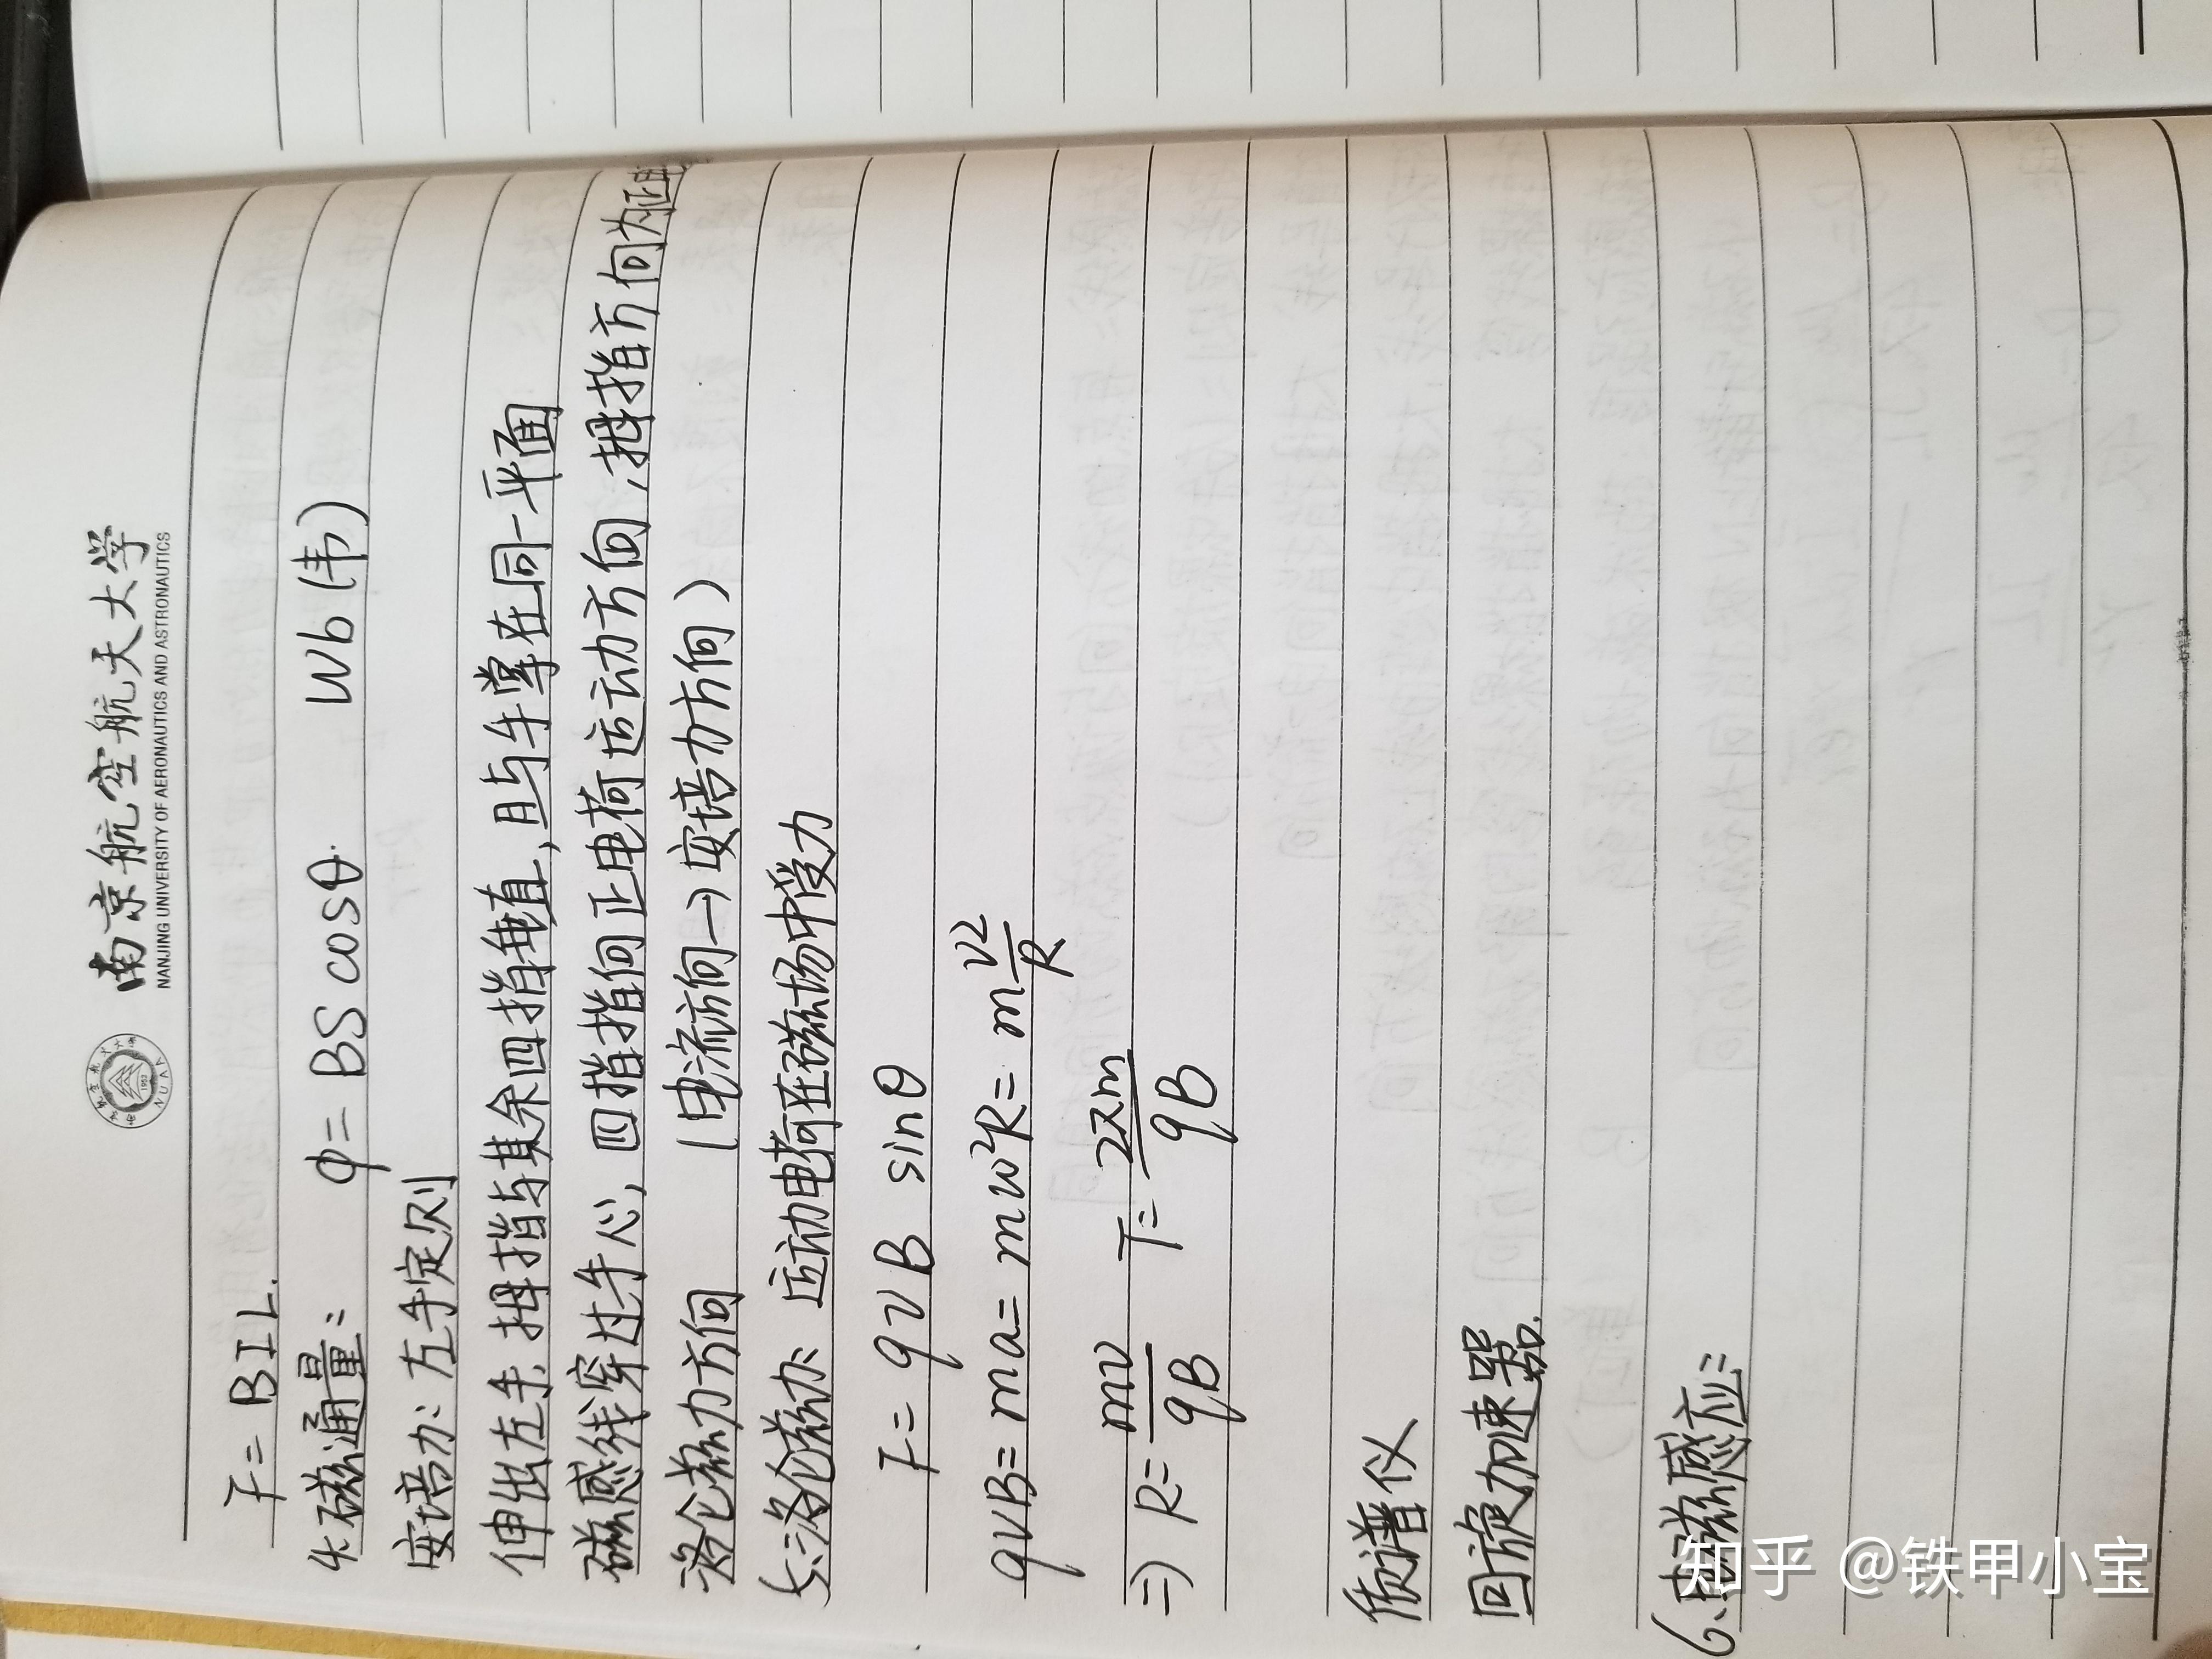 南京航空航天大学
NANJING UNIVERSITY OF AERONAUTICS AND ASTRONAUTICS
F = BIL.
4、磁通量： φ = BS cosθ. Wb (韦)
安培力：左手定则
伸出左手，拇指与其余四指垂直，且与手掌在同一平面
磁感线穿过手心，四指指向正电荷运动方向，拇指方向为正电
洛伦兹力方向 (电流方向→安培力方向)
5、洛伦兹力：运动电荷在磁场中受力
F = qvB sinθ
qvB = ma = mω²R = m v²/R
⇒) R = mv/qB T = 2πm/qB
质谱仪
回旋加速器.
6、电磁感应：
知乎 @铁甲小宝